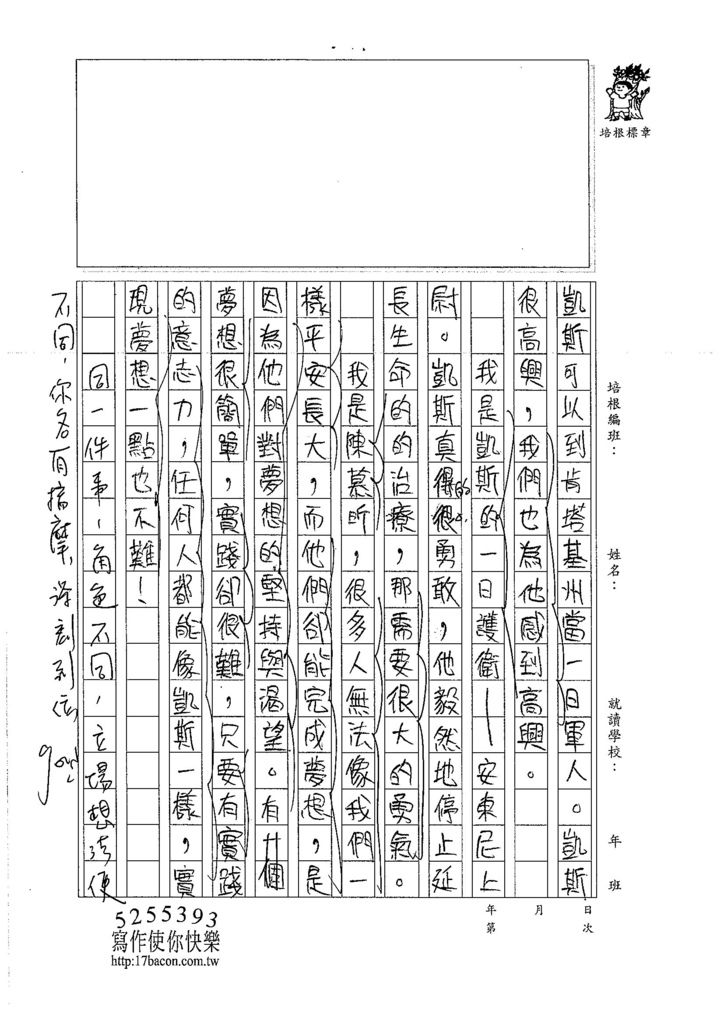 培根標章
培根編班：
姓名：
就讀學校：
年
班
凱斯可以到肯塔基州當一日軍人。凱斯
很高興，我們也為他感到高興。
我是凱斯的一日護衛—安東尼上
尉。凱斯真得很勇敢，他毅然地停止延
的
長生命的的治療，那需要很大的勇氣。
我是陳慕昕，很多人無法像我們一
樣平安長大，而他們卻能完成夢想，是
因為他們對夢想的堅持與渴望。有一個
夢想很簡單，實踐卻很難，只要有實踐
的意志力，任何人都能像凱斯一樣，實
現夢想一點也不難！
同一件事，角色不同，立場想法便
不同，你名有揣摩，深刻到位
年　月　日
第　次
5255393
寫作使你快樂
http:17bacon.com.tw